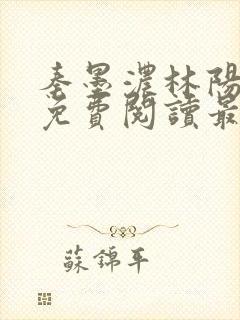 秦墨濃林陽
免費閱讀最
蘇錦年